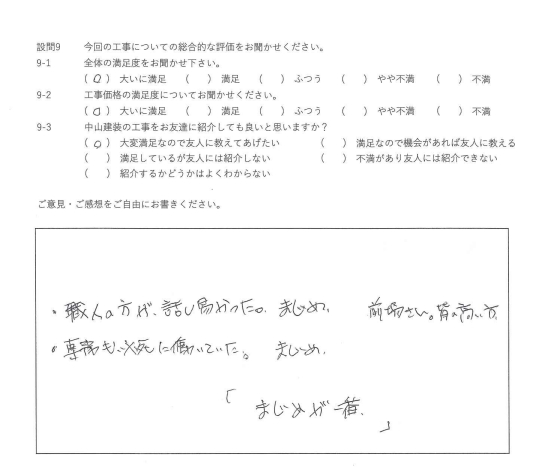 設問9 今回の工事についての総合的な評価をお聞かせください。
9-1 全体の満足度をお聞かせ下さい。
(○) 大いに満足 ( ) 満足 ( ) ふつう ( ) やや不満 ( ) 不満
9-2 工事価格の満足度についてお聞かせください。
(○) 大いに満足 ( ) 満足 ( ) ふつう ( ) やや不満 ( ) 不満
9-3 中山建装の工事をお友達に紹介しても良いと思いますか?
(○) 大変満足なので友人に教えてあげたい ( ) 満足なので機会があれば友人に教える
( ) 満足しているが友人には紹介しない ( ) 不満があり友人には紹介できない
( ) 紹介するかどうかはよくわからない
ご意見・ご感想をご自由にお書きください。
・職人の方が、話し易かった。まじめ、 前場さい。背の高い方
・専務も必死に働いていた。 まじめ、
「まじめが一番、」